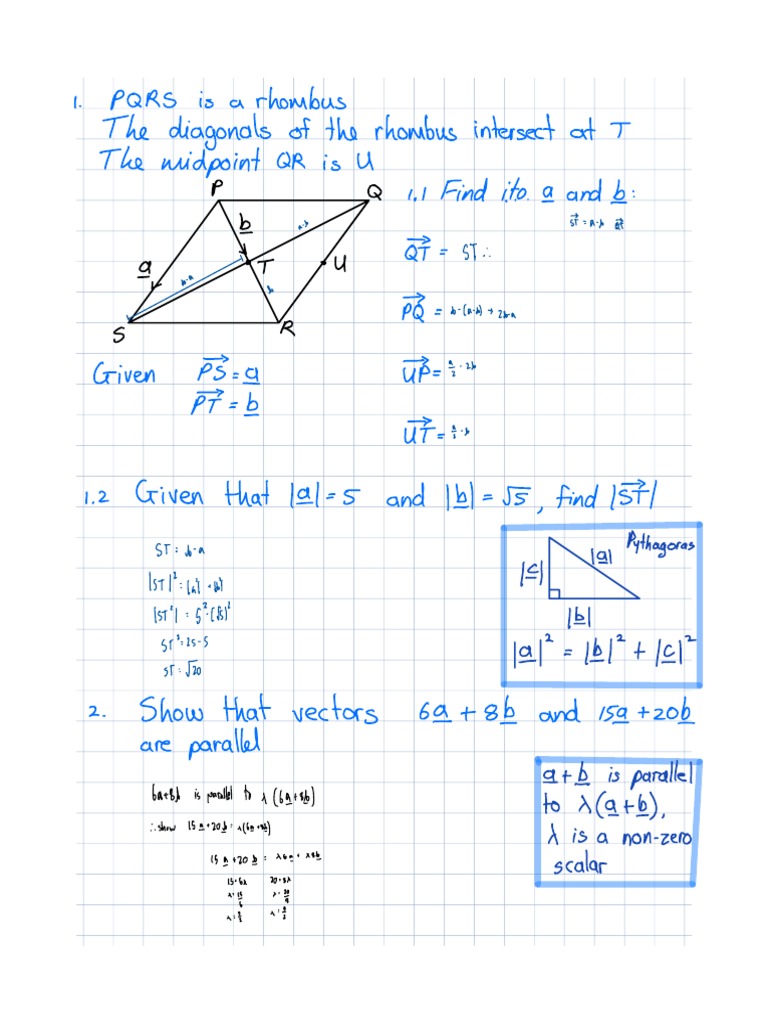 1. PQRS is a rhombus
The diagonals of the rhombus intersect at T
The midpoint QR is U
P
Q
b
a-b
a
T
U
b-a
b
S
R
Given PS = a
PT = b
1.1 Find i.t.o. a and b:
ST = a-b QT
QT = ST ∴
PQ = b-(a-b) → 2b-a
UP = a/2 - 2b
UT = a/2 - b
1.2 Given that |a| = 5 and |b| = √5, find |ST|
ST = b-a
|ST|² =
|ST²| = 5² - (√5)²
ST² = 25-5
ST = √20
Pythagoras
|a|
|c|
|b|
|a|² = |b|² + |c|²
2. Show that vectors 6a + 8b and 15a + 20b
are parallel
6a+8b is parallel to λ(6a+8b)
∴ show 15a+20b = λ(6a+8b)
15a+20b = λ6a + λ8b
15=6λ 20=8λ
λ=15/6
λ=5/2 λ=5/2
a+b is parallel
to λ(a+b),
λ is a non-zero
scalar